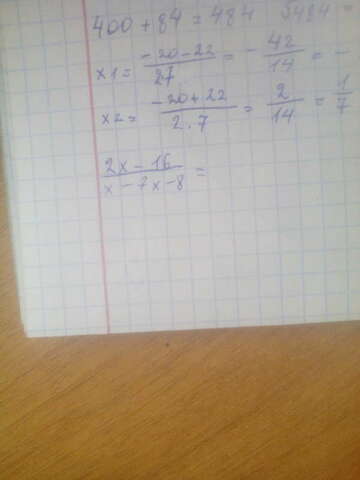 400 + 84 = 484 √484 =
x1 = (-20-22)/27 = - 42/14 = -
x2 = (-20+22)/(2·7) = 2/14 = 1/7
(2x - 16)/(x - 7x - 8) =